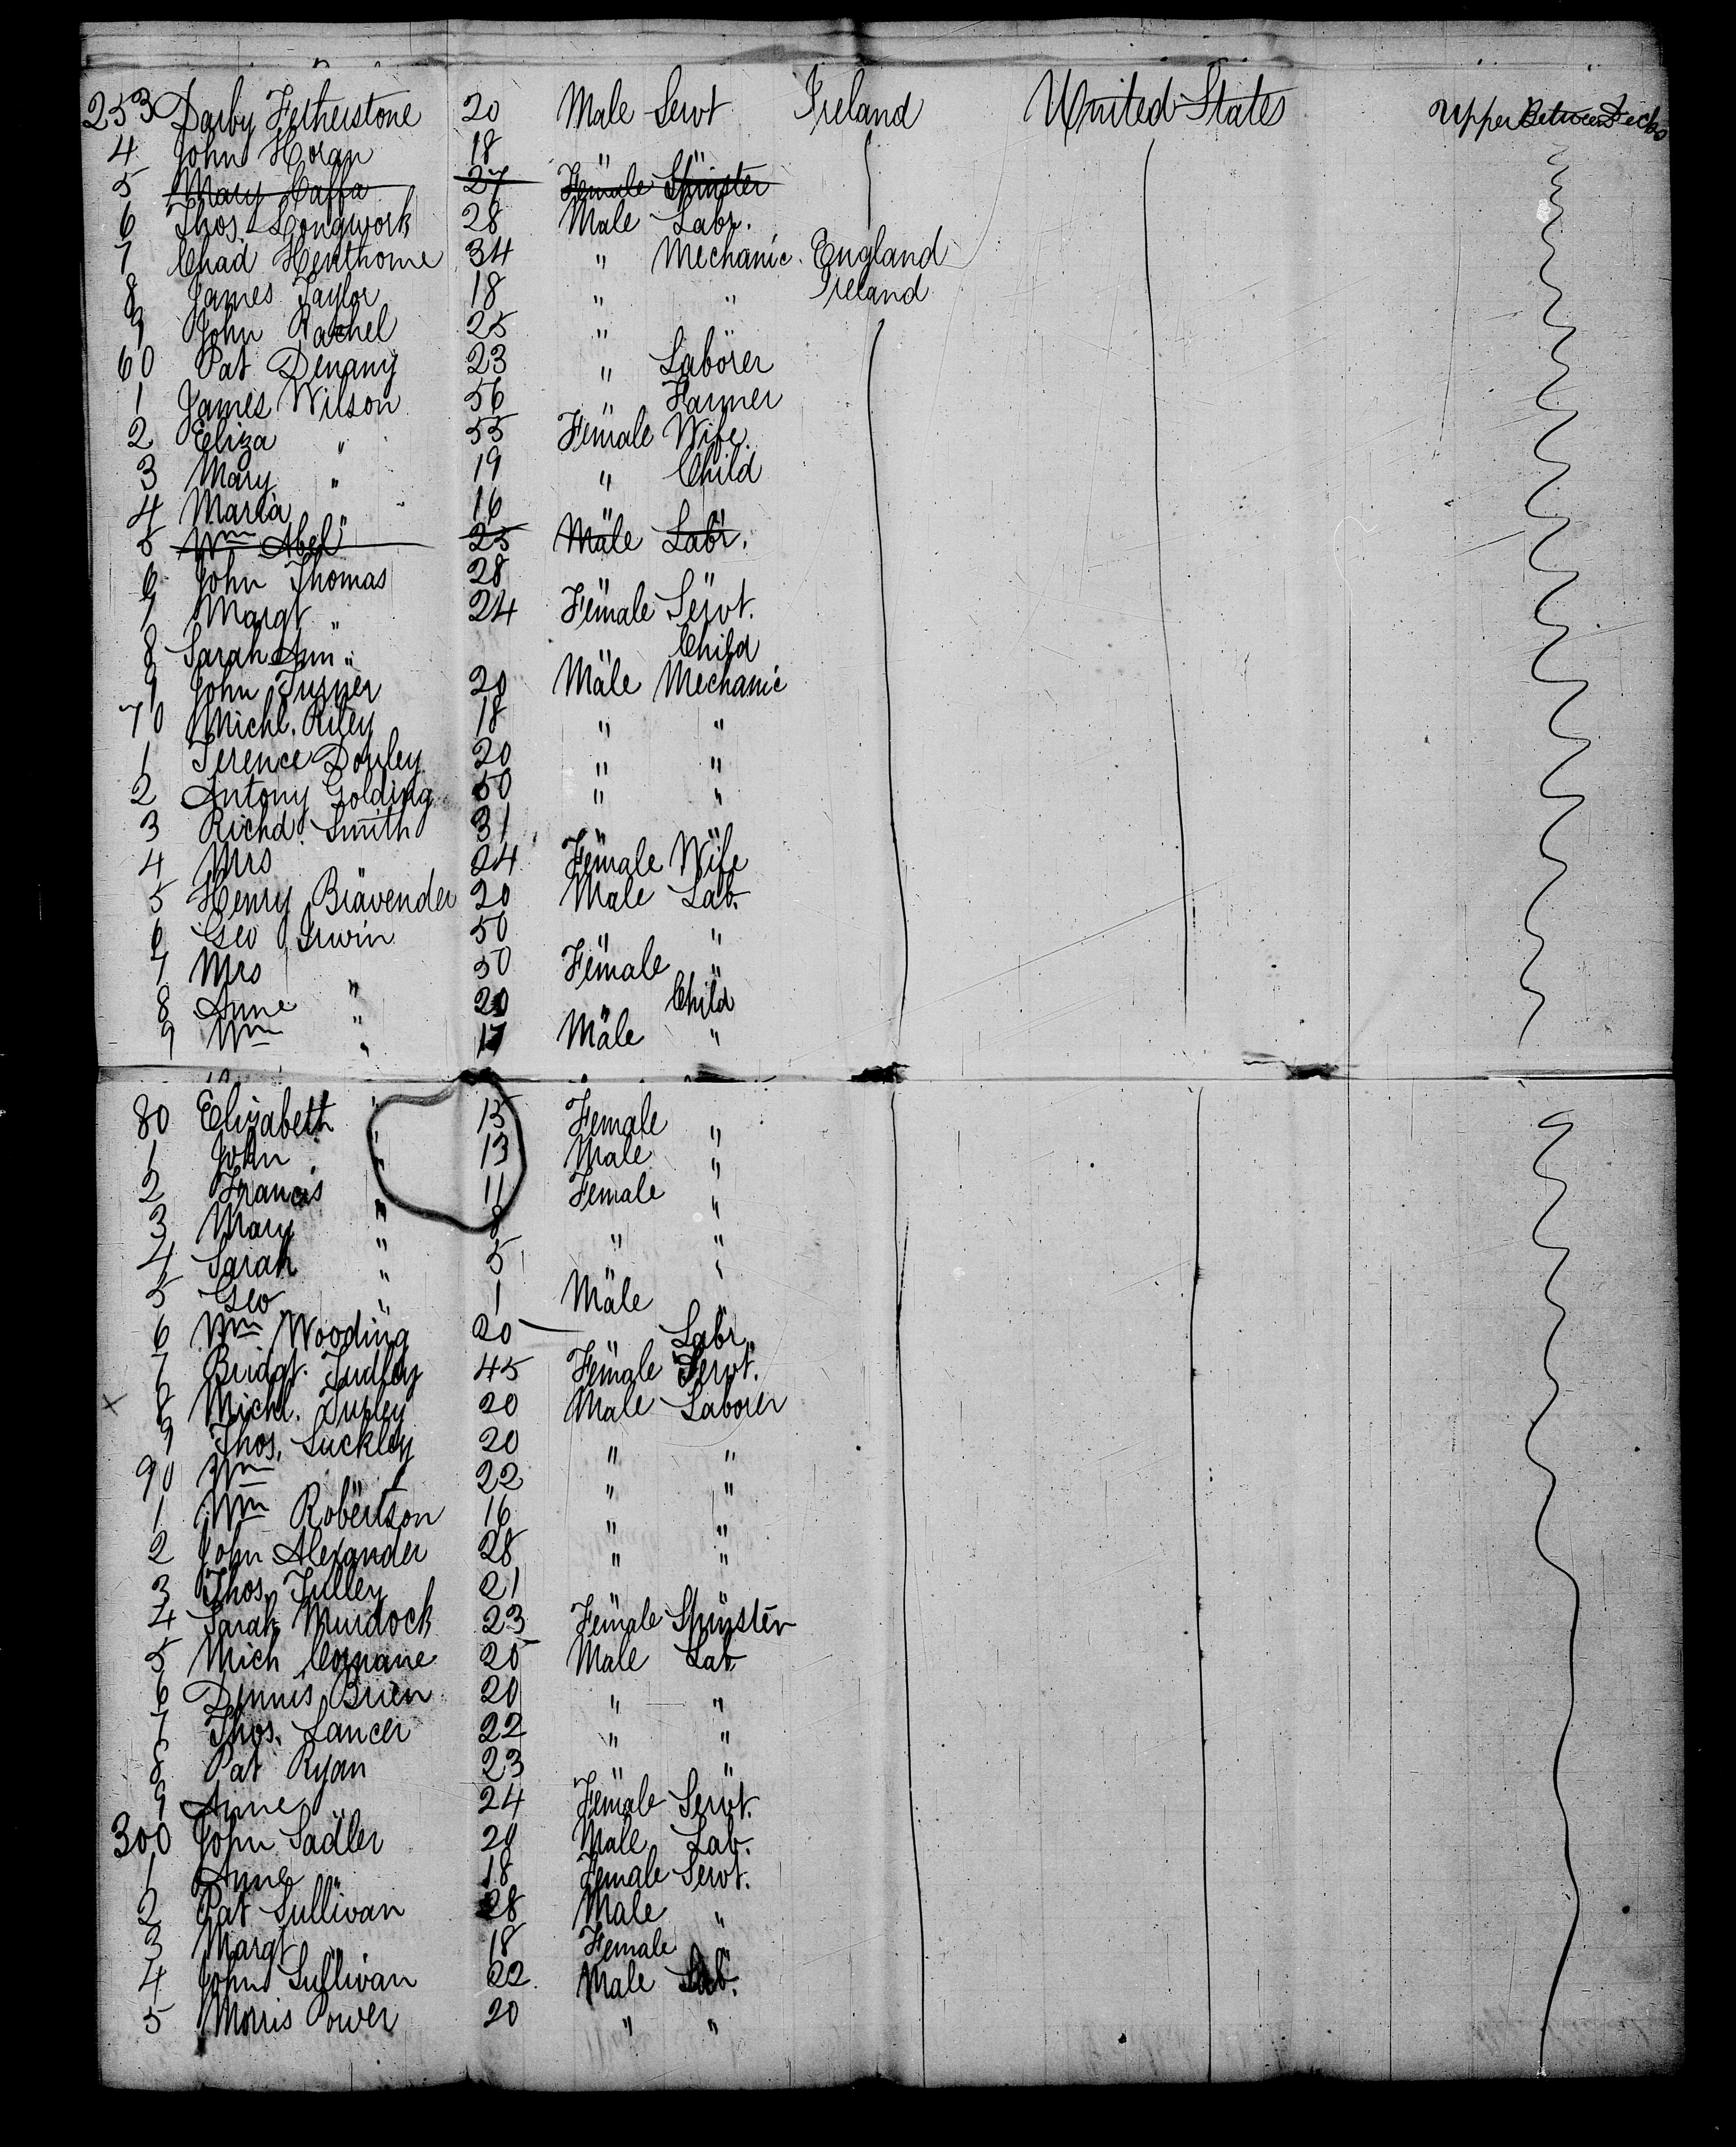 253 Darby Fetherstone 20 Male Servt Ireland United States Upper Between Decks
4 John Horan 18 " "
5 Mary Caffa 27 Female Spinster
6 Thos. Longwork 28 Male Labr.
7 Chad Henthorne 34 " Mechanic. England
8 James Taylor 18 " " Ireland
9 John Rachel 25 " "
60 Pat Denany 23 " Laborer
1 James Wilson 56 " Farmer
2 Eliza " 55 Female Wife.
3 Mary " 19 " Child
4 Maria " 16 " "
5 Wm Abel 25 Male Labr.
6 John Thomas 28 " "
7 Margt " 24 Female Servt.
8 Sarah Ann " " Child
9 John Turner 20 Male Mechanic
70 Michl. Riley 18 " "
1 Terence Donley 20 " "
2 Antony Golding 50 " "
3 Richd. Smith 31 " "
4 Mrs " 24 Female Wife
5 Henry Bravender 20 Male Lab.
6 Geo Irwin 50 " "
7 Mrs " 50 Female "
8 Anne " 20 " Child
9 Wm " 17 Male "
80 Elizabeth " 15 Female "
1 John " 13 Male "
2 Francis " 11 Female "
3 Mary " 8 " "
4 Sarah " 5 " "
5 Geo " 1 Male "
6 Wm Wooding 20 " Labr
7 Bridgt. 45 Female Servt.
x 8 Michl. 20 Male Laborer
9 Thos. Luckley 20 " "
90 Wm " 22 " "
1 Wm Robertson 16 " "
2 John Alexander 28 " "
3 Thos. Tulley 21 " "
4 Sarah Murdock 23 Female Spinster
5 Mich 20 Male Lab
6 Dennis Brien 20 " "
7 Thos. Lancer 22 " "
8 Pat Ryan 23 " "
9 Anne " 24 Female Servt.
300 John Sadler 20 Male Lab.
1 Anne " 18 Female Servt.
2 Pat Sullivan 28 Male "
3 Margt " 18 Female "
4 John Sullivan 22 Male Lab.
5 Morris Power 20 " "